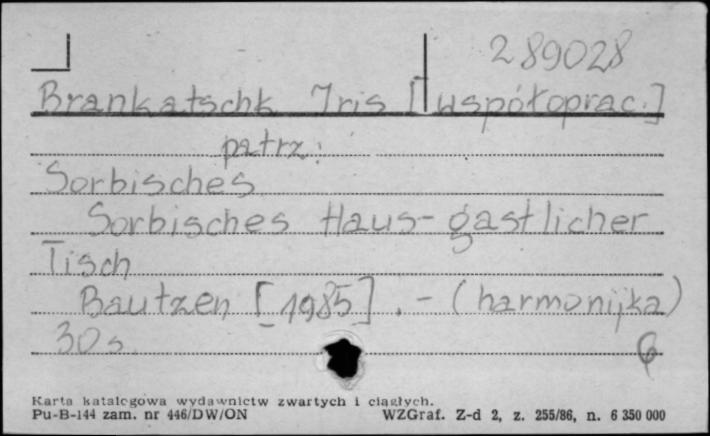 289028
Brankatschk Iris [współoprac.]
patrz:
Sorbisches
Sorbisches Haus-gastlicher
Tisch
Bautzen [1985]. - (harmonijka)
30 s.
Karta katalogowa wydawnictw zwartych i ciągłych.
Pu-B-144 zam. nr 446/DW/ON WZGraf. Z-d 2, z. 255/86, n. 6 350 000